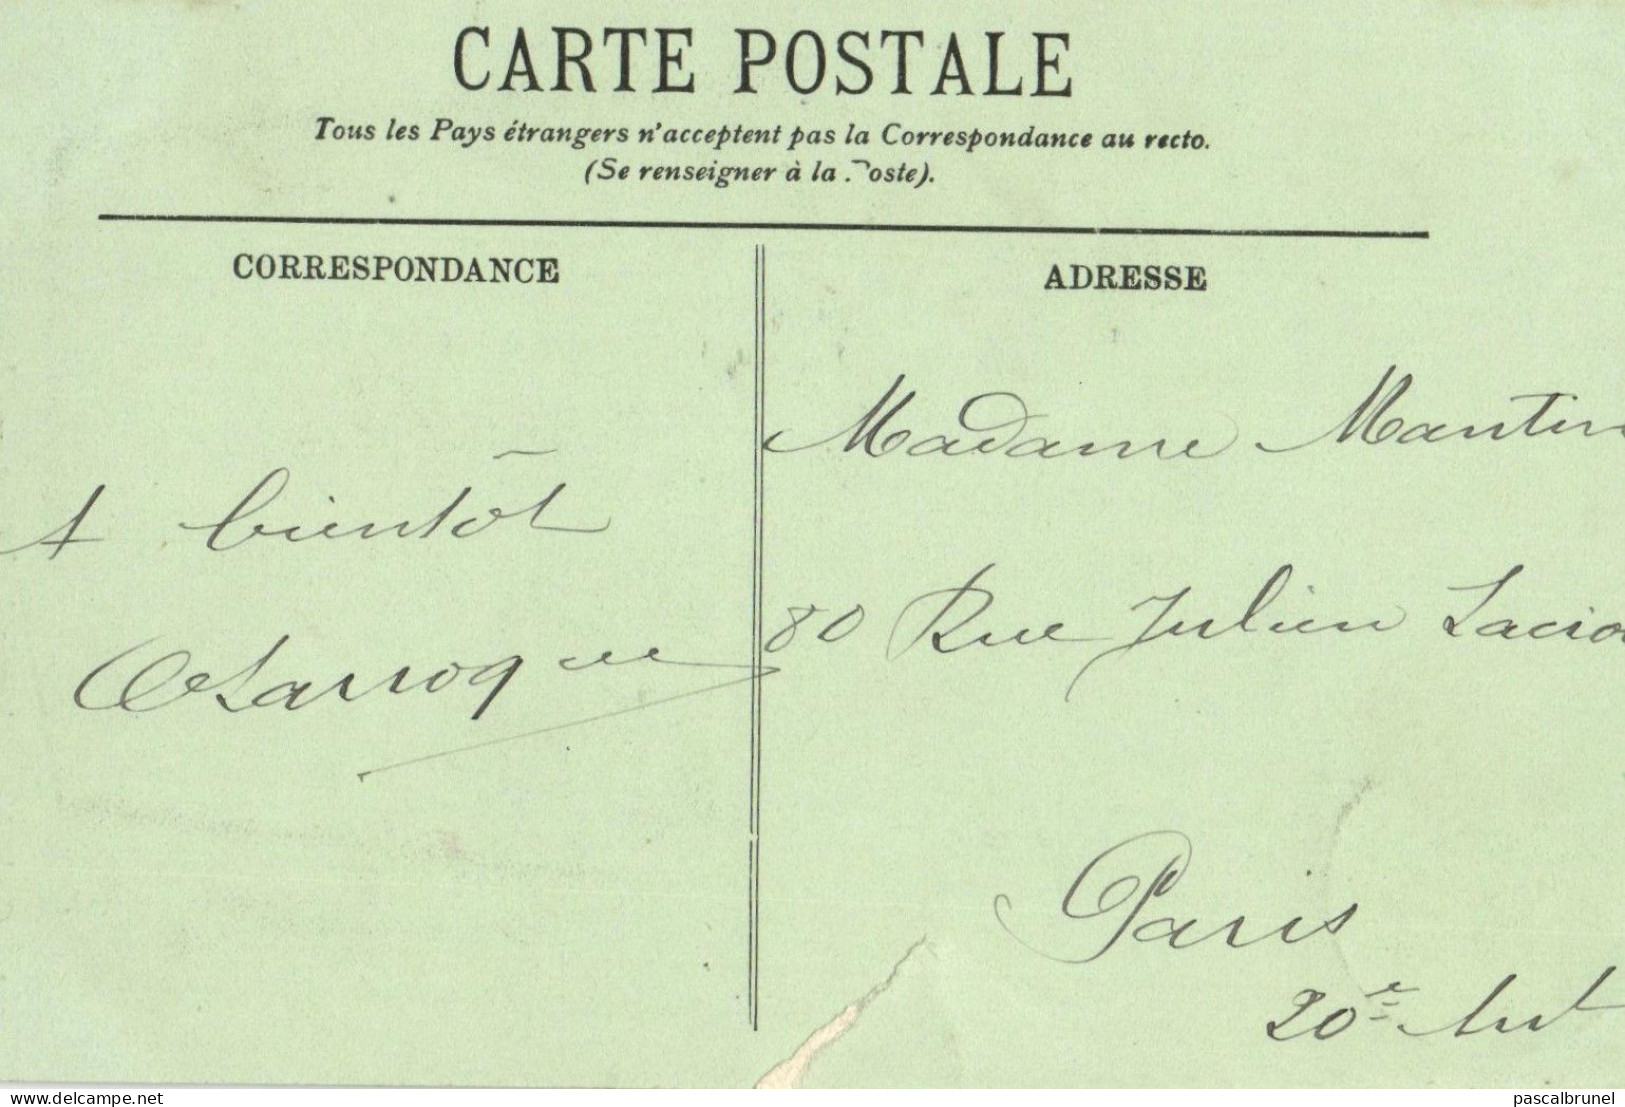 CARTE POSTALE
Tous les Pays étrangers n'acceptent pas la Correspondance au recto.
(Se renseigner à la Poste).
CORRESPONDANCE
ADRESSE
A bientôt
Larroque
Madame Mantin
80 Rue Julien Lacroi
Paris
20e
delcampe.net
pascalbrunel